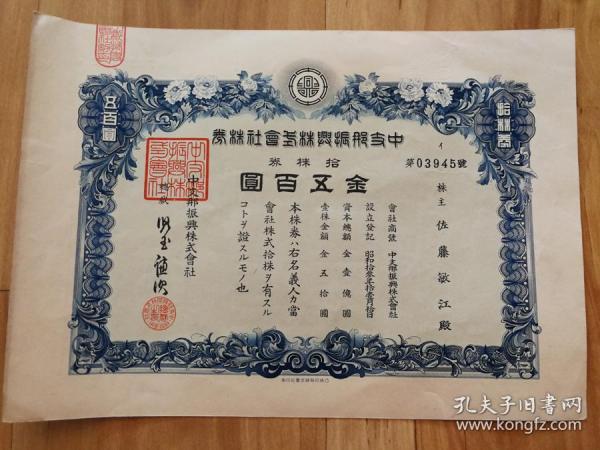 中支那振興株式會社株券
拾株券
第03945號
イ
金五百圓
株主 佐藤敏江殿
會社商號 中支那振興株式會社
設立登記 昭和拾參年拾壹月拾日
資本總額 金壹億圓
壹株金額 金五拾圓
本株券ハ右名義人カ當
會社株式拾株ヲ有スル
コトヲ證スルモノ也
中支那振興株式會社
總裁 兒玉謙次
五百圓
拾株券
孔夫子旧书网
www.kongfz.com